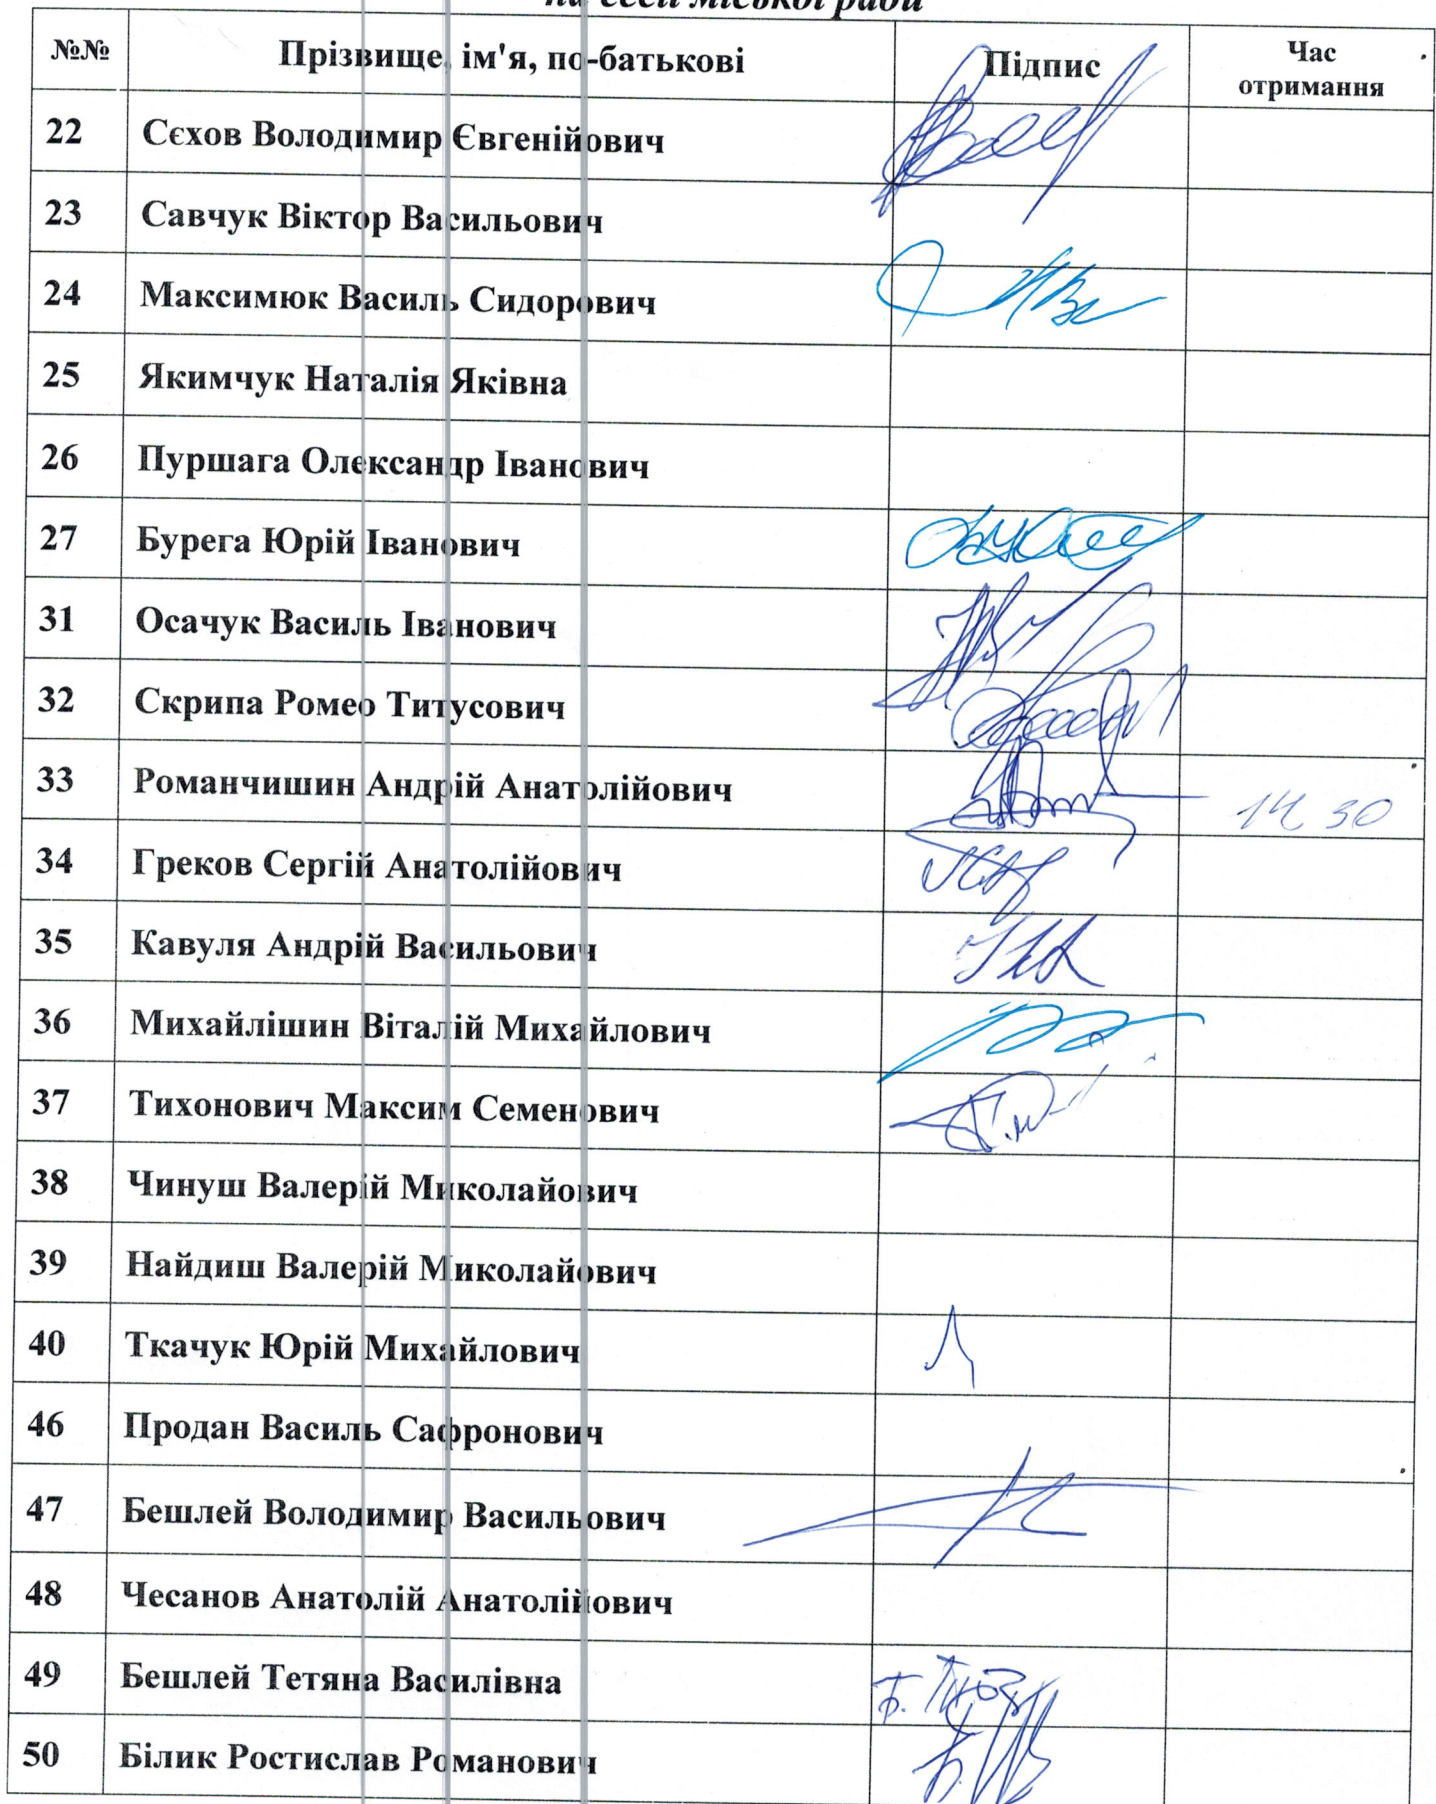 на сесії міської ради
№№ Прізвище, ім'я, по-батькові Підпис Час
отримання
22 Сєхов Володимир Євгенійович
23 Савчук Віктор Васильович
24 Максимюк Василь Сидорович
25 Якимчук Наталія Яківна
26 Пуршага Олександр Іванович
27 Бурега Юрій Іванович
31 Осачук Василь Іванович
32 Скрипа Ромео Титусович
33 Романчишин Андрій Анатолійович 14 30
34 Греков Сергій Анатолійович
35 Кавуля Андрій Васильович
36 Михайлішин Віталій Михайлович
37 Тихонович Максим Семенович
38 Чинуш Валерій Миколайович
39 Найдиш Валерій Миколайович
40 Ткачук Юрій Михайлович
46 Продан Василь Сафронович
47 Бешлей Володимир Васильович
48 Чесанов Анатолій Анатолійович
49 Бешлей Тетяна Василівна
50 Білик Ростислав Романович